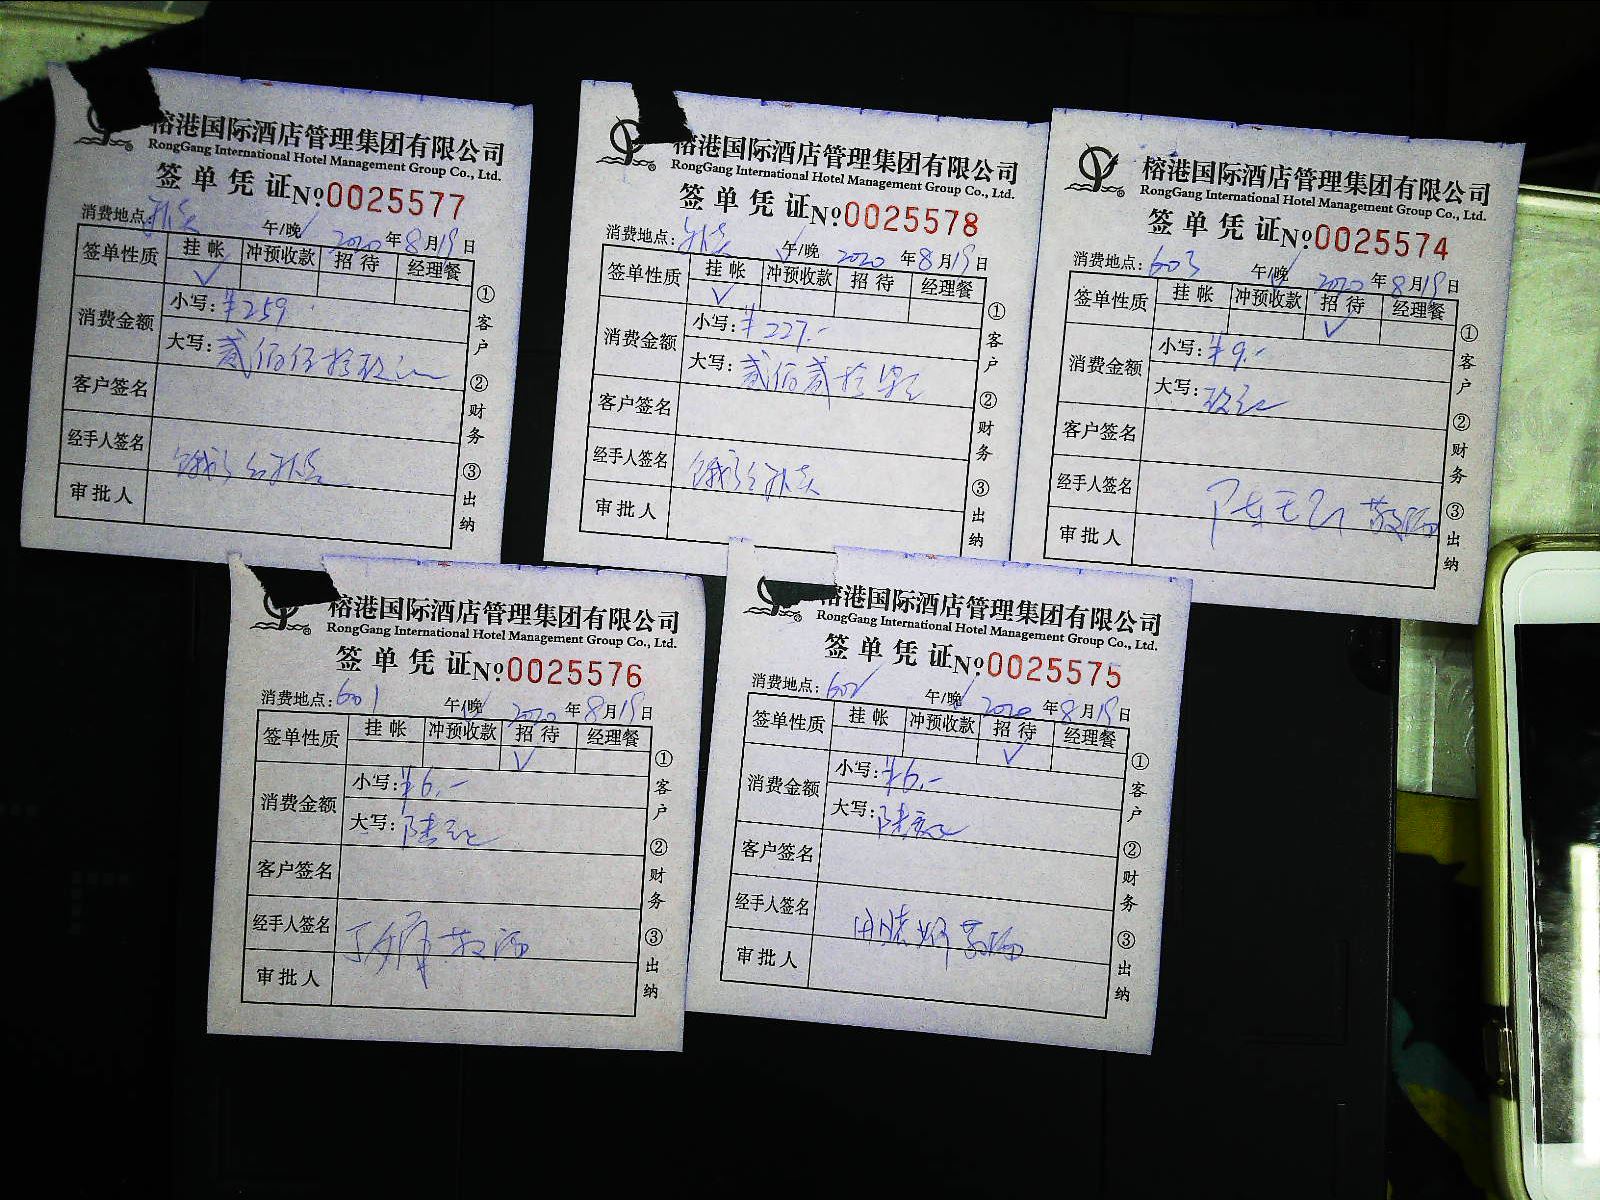 榕港国际酒店管理集团有限公司
RongGang International Hotel Management Group Co., Ltd.
签单凭证 No 0025577
消费地点: 外卖 午/晚 2020年8月19日
签单性质 挂帐 冲预收款 招待 经理餐
✓
消费金额 小写: ¥259.
大写: 贰佰伍拾玖元
客户签名
经手人签名 外卖
审批人
①客户 ②财务 ③出纳
榕港国际酒店管理集团有限公司
RongGang International Hotel Management Group Co., Ltd.
签单凭证 No 0025578
消费地点: 外卖 午/晚 2020年8月19日
签单性质 挂帐 冲预收款 招待 经理餐
✓
消费金额 小写: ¥227.-
大写: 贰佰贰拾柒元
客户签名
经手人签名 外卖
审批人
①客户 ②财务 ③出纳
榕港国际酒店管理集团有限公司
RongGang International Hotel Management Group Co., Ltd.
签单凭证 No 0025574
消费地点: 603 午/晚 2020年8月19日
签单性质 挂帐 冲预收款 招待 经理餐
✓
消费金额 小写: ¥9.-
大写: 玖元
客户签名
经手人签名
审批人
①客户 ②财务 ③出纳
榕港国际酒店管理集团有限公司
RongGang International Hotel Management Group Co., Ltd.
签单凭证 No 0025576
消费地点: 601 午/晚 2020年8月19日
签单性质 挂帐 冲预收款 招待 经理餐
✓
消费金额 小写: ¥6.-
大写: 陆元
客户签名
经手人签名
审批人
①客户 ②财务 ③出纳
榕港国际酒店管理集团有限公司
RongGang International Hotel Management Group Co., Ltd.
签单凭证 No 0025575
消费地点: 602 午/晚 2020年8月19日
签单性质 挂帐 冲预收款 招待 经理餐
✓
消费金额 小写: ¥6.-
大写: 陆元
客户签名
经手人签名
审批人
①客户 ②财务 ③出纳